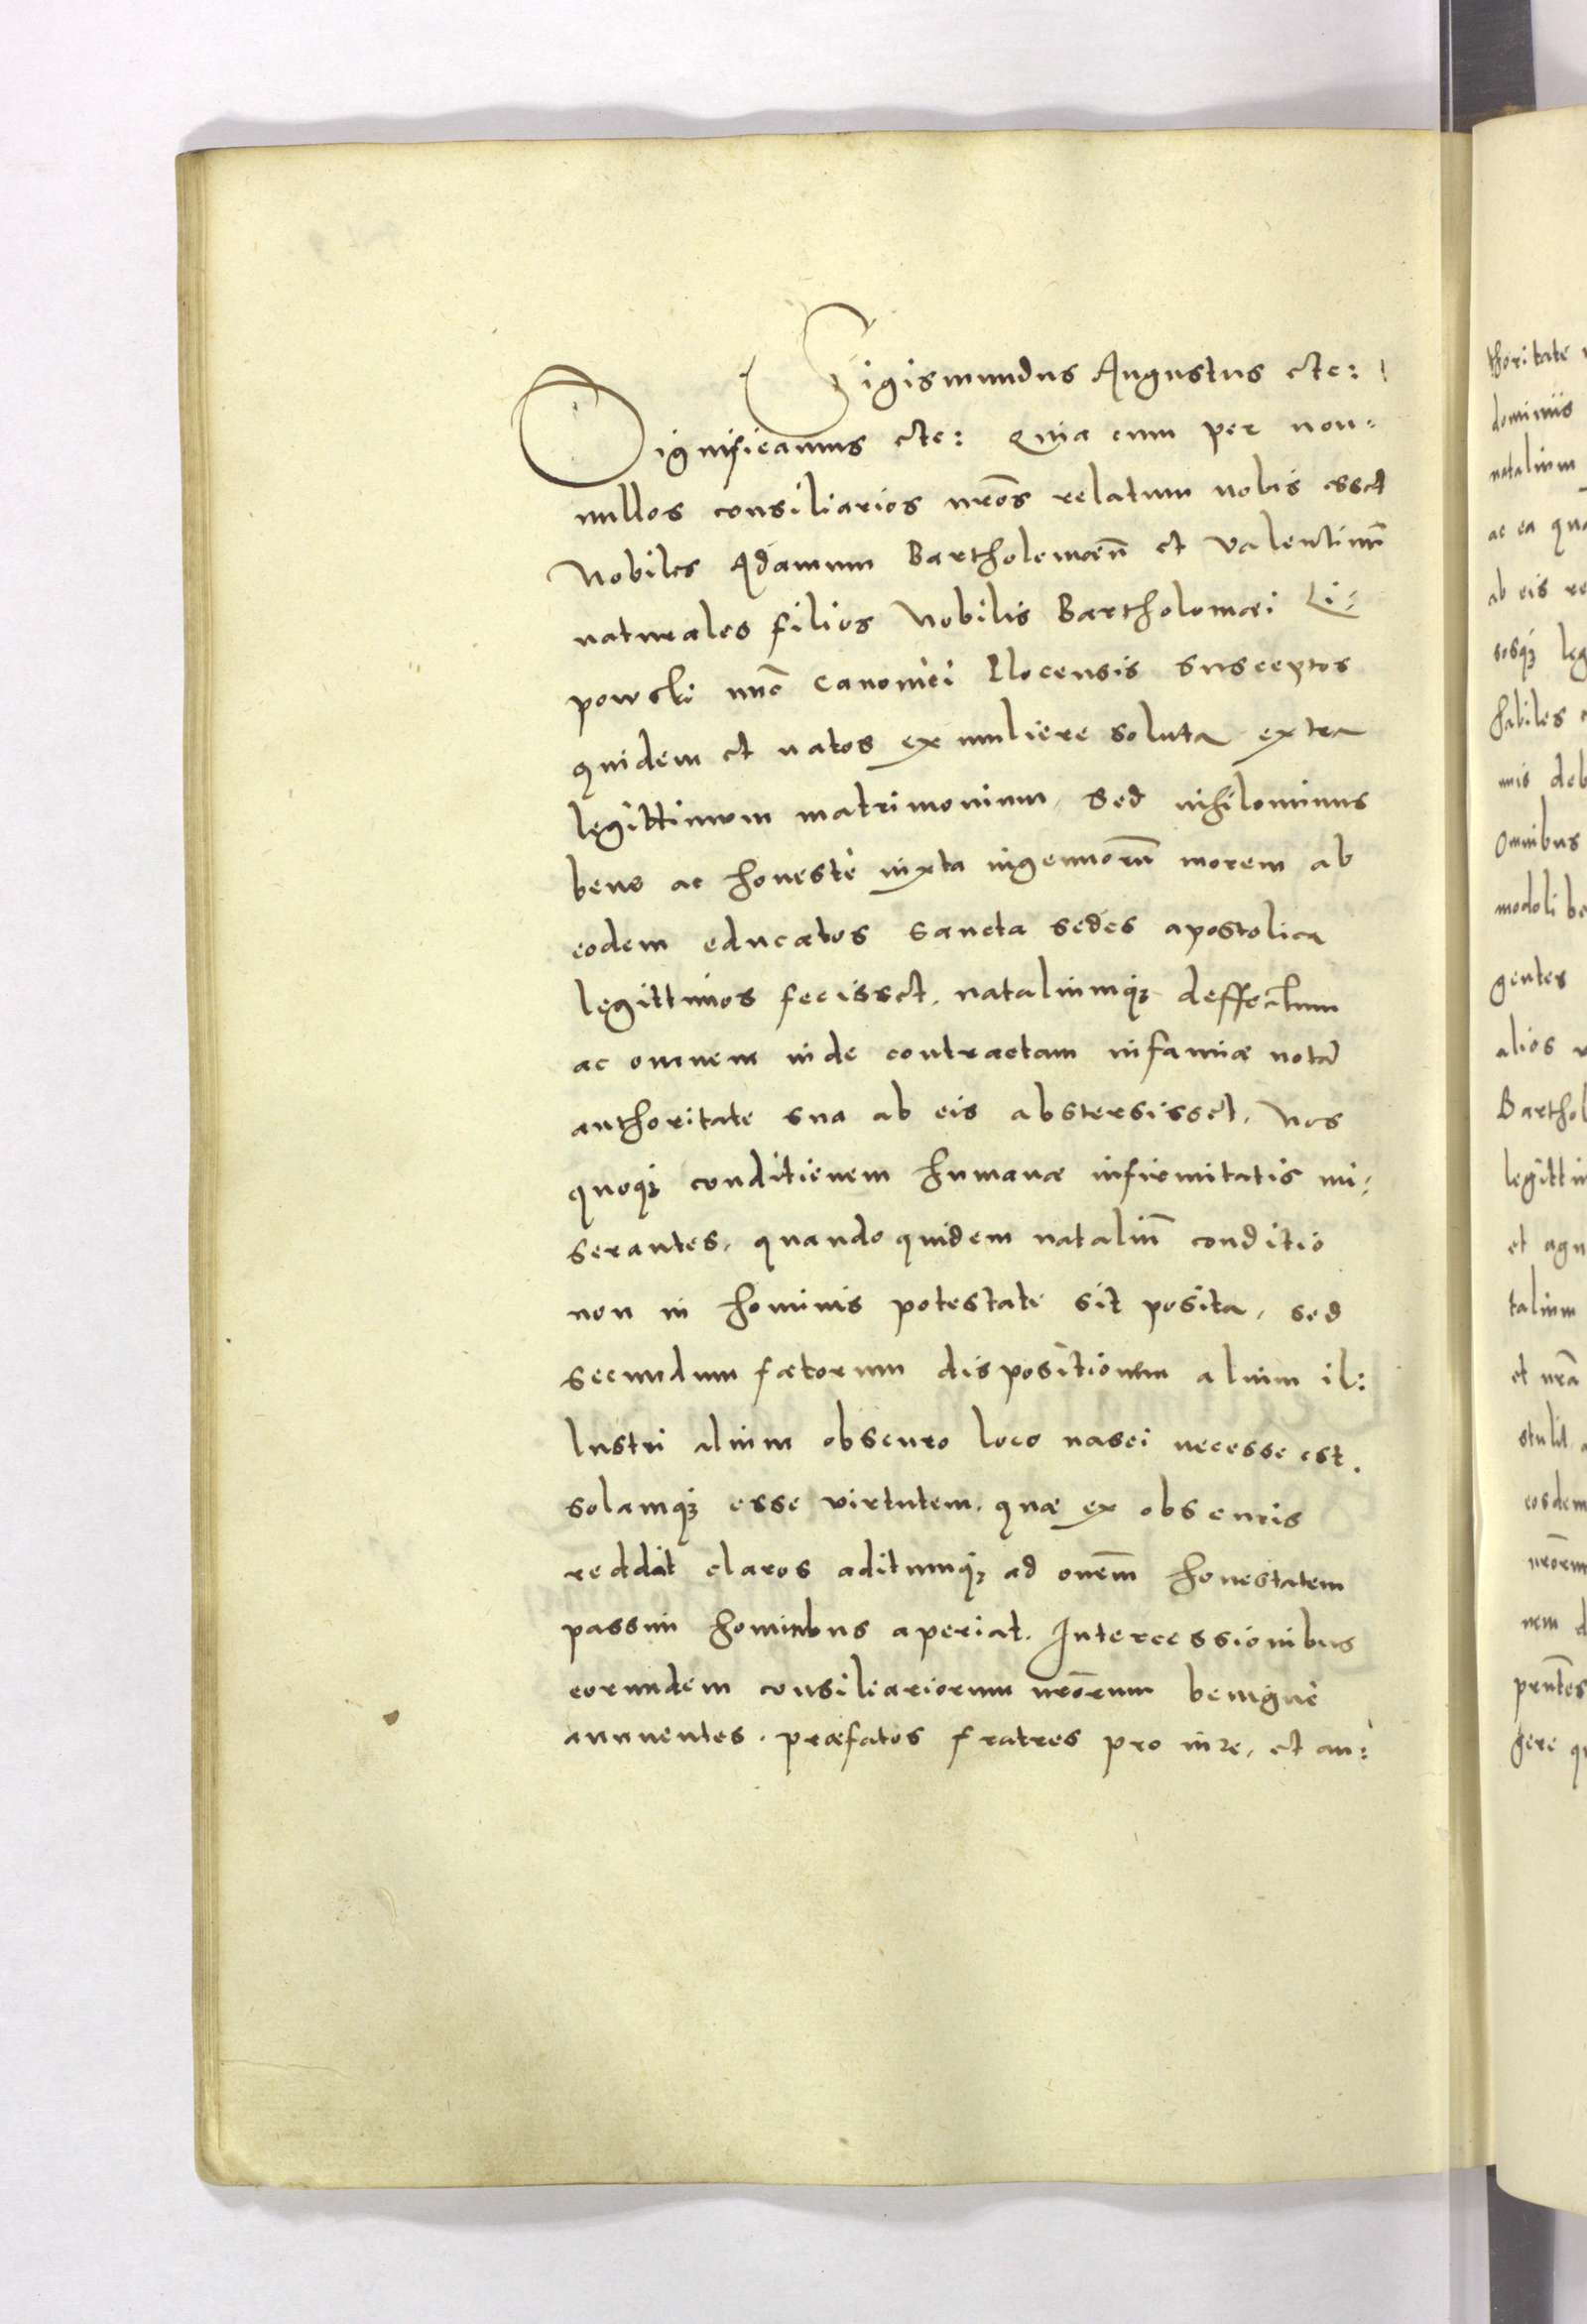 Sigismundus Augustus etc:
Significamus etc: Quia cum per non-
nullos consiliarios nr̄os relatum nobis esset
Nobiles Adamum Bartholomæū et Valentinū
naturales filios Nobilis Bartholomæi Li-
powski nūc Canonici Plocensis susceptos
quidem et natos ex muliere soluta extra
legittimum matrimonium, sed nihilominus
bene ac honestè iuxta ingenuorū morem ab
eodem educatos Sancta sedes apostolica
legittimos fecisset, nataliumqꝫ deffectum
ac omnem inde contractam infamiæ notā
authoritate sua ab eis abstersisset, Nos
quoqꝫ conditionem humanæ infirmitatis mi-
serantes, quando quidem nataliū conditio
non in hominis potestate sit posita, sed
secundum fatorum dispositionem alium il:
lustri alium obscuro loco nasci necesse est.
solamqꝫ esse virtutem, quæ ex obscuris
reddat claros aditumqꝫ ad om̄em honestatem
passim hominibus aperiat. Intercessionibus
eorundem consiliariorum nr̄orum benignè
annuentes. præfatos fratres pro iure, et au:
thoritate
dominiis
natalium
ac ea
ab eis re
sosqꝫ leg
habiles
mis deb
Omnibus
modoli be
gentes
alios
Barthol
legittim
et agn
talium
et nr̄a
stulit
eosdem
nr̄orum
nem d
pn̄tes
gere